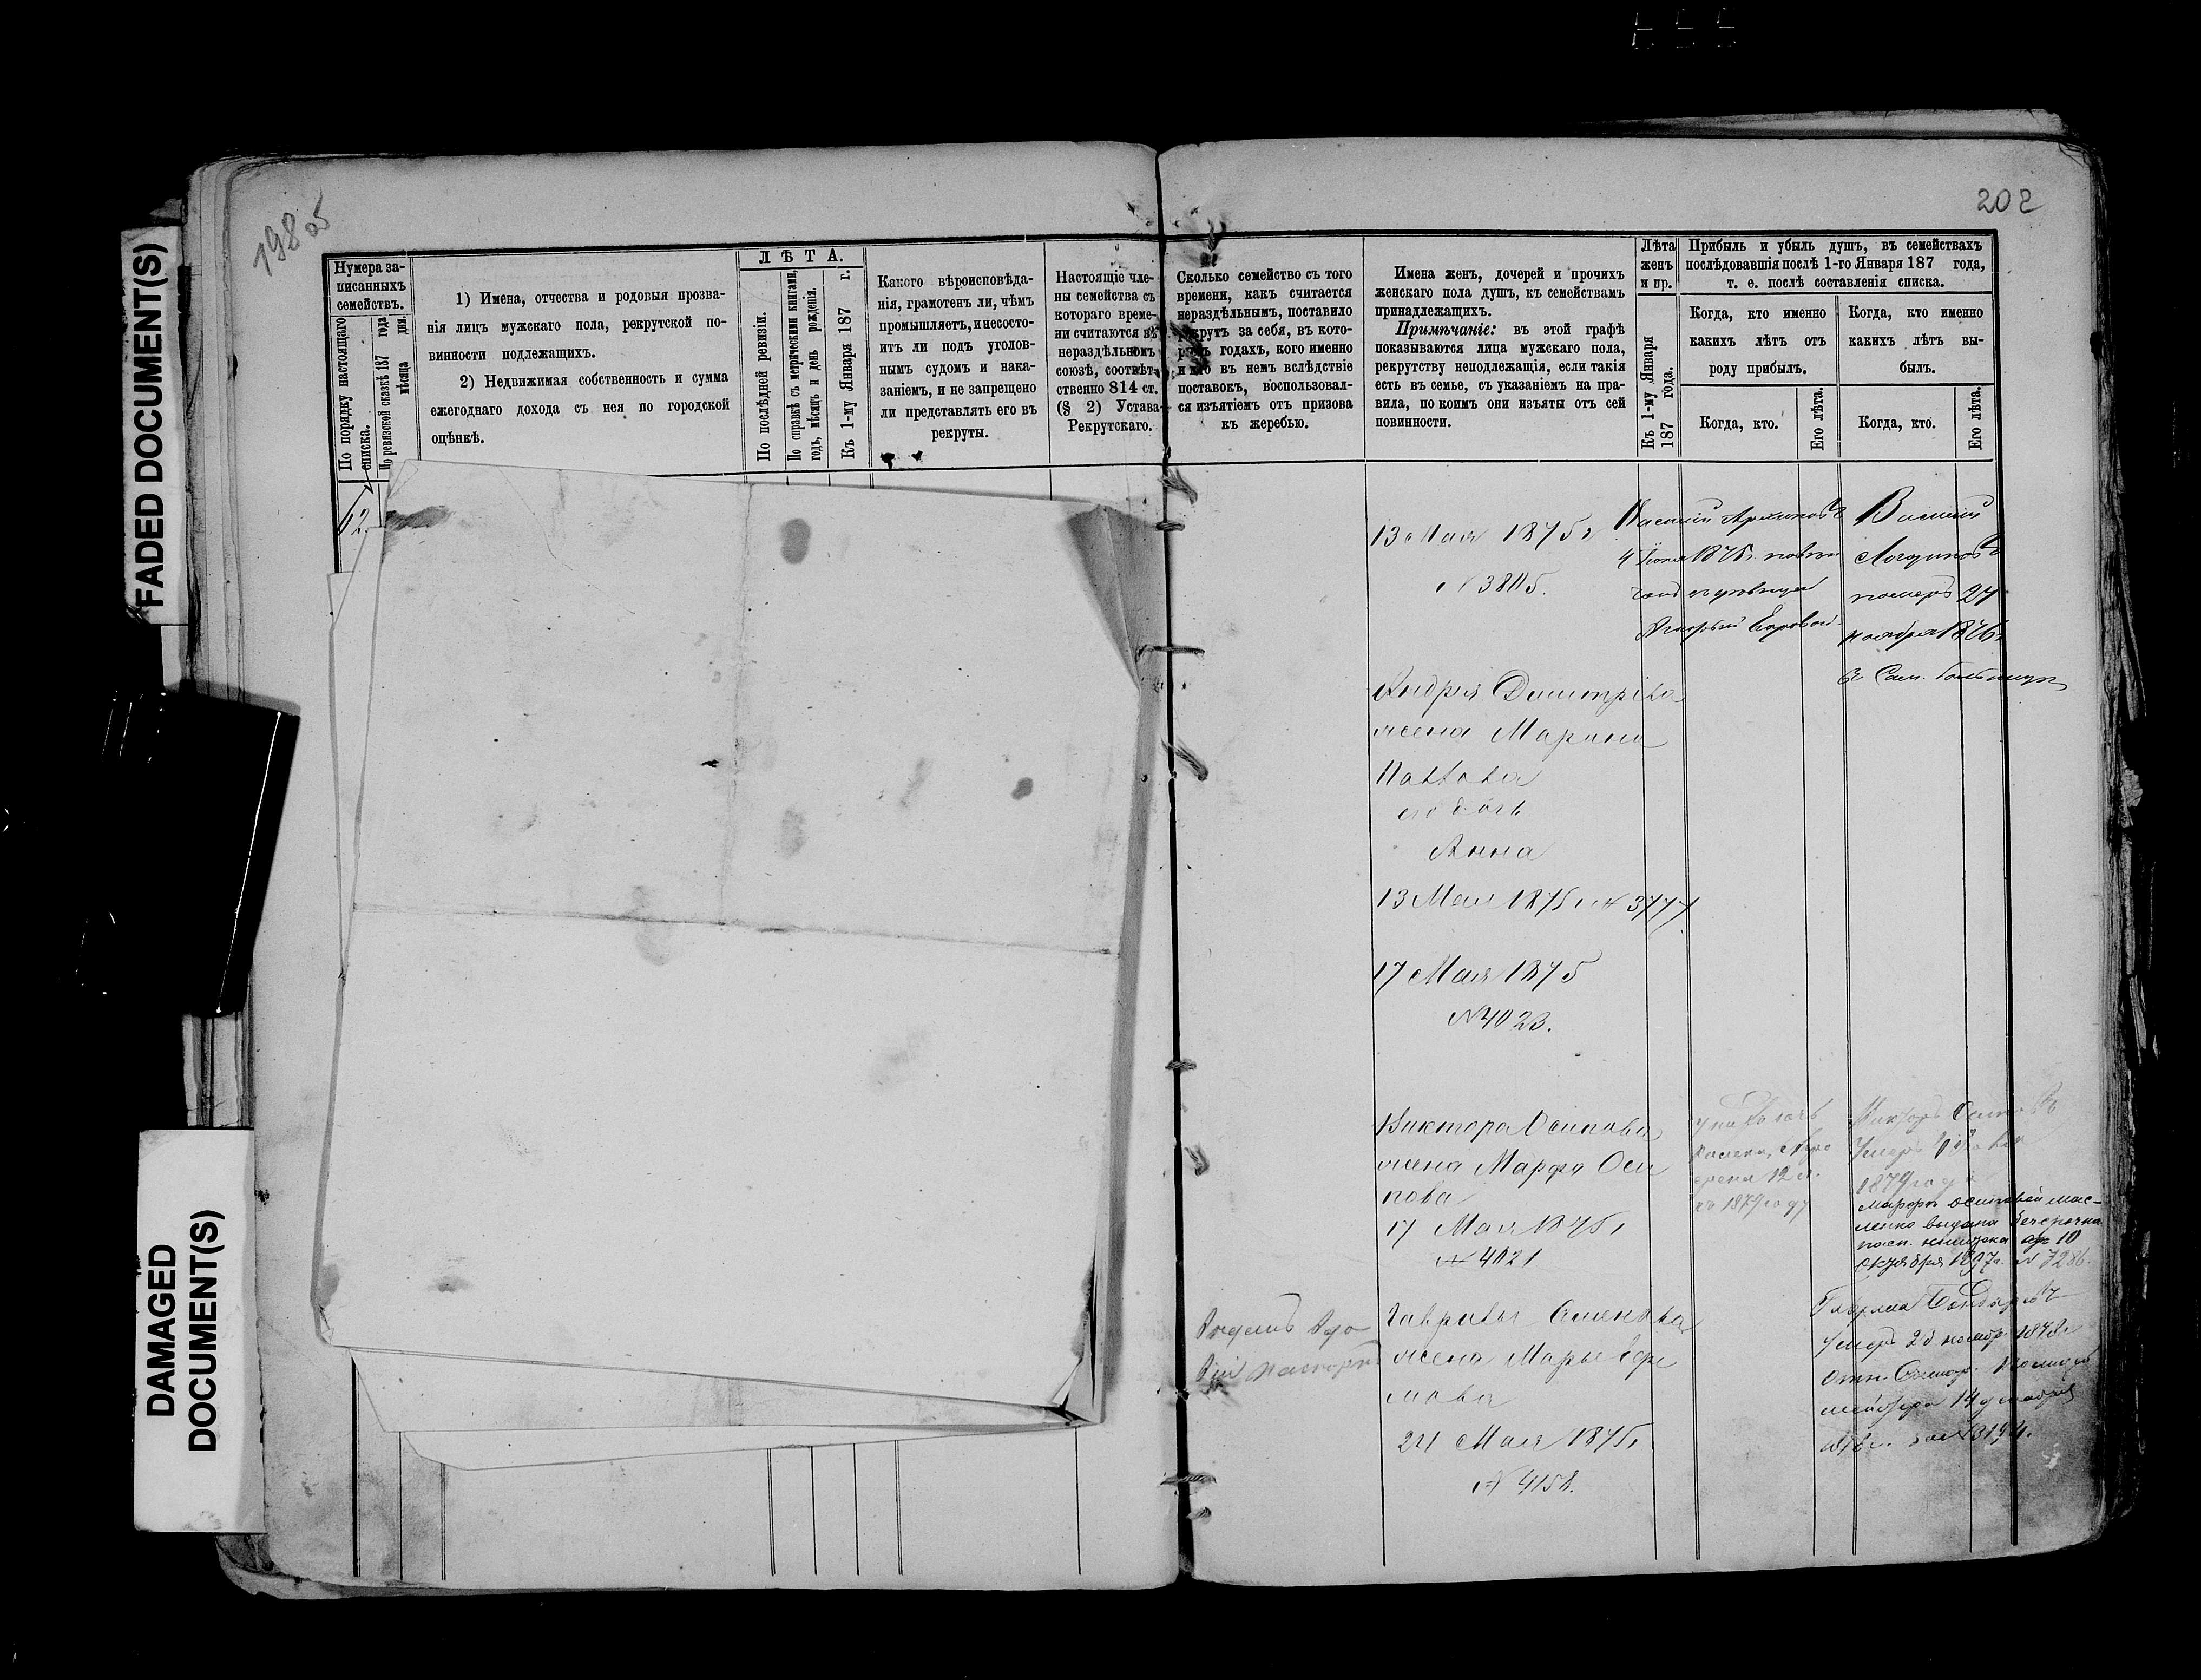 FADED DOCUMENT(S)
DAMAGED
DOCUMENT(S)
198 об
202
Нумера за-
писанныхъ
семействъ.
По порядку настоящаго
списка.
По ревизской сказкѣ 187 года
мѣсяца дня.
1) Имена, отчества и родовыя прозва-
нія лицъ мужскаго пола, рекрутской по-
винности подлежащихъ.
2) Недвижимая собственность и сумма
ежегоднаго дохода съ нея по городской
оцѣнкѣ.
ЛѢТА.
По послѣдней ревизіи.
По справкѣ съ метрическими книгами,
годъ, мѣсяцъ и день рожденія.
Къ 1-му Января 187 г.
Какого вѣроисповѣда-
нія, грамотенъ ли, чѣмъ
промышляетъ, и несосто-
итъ ли подъ уголов-
нымъ судомъ и нака-
заніемъ, и не запрещено
ли представлять его въ
рекруты.
Настоящіе чле-
ны семейства съ
котораго време-
ни считаются въ
нераздѣльномъ
союзѣ, соотвѣт-
ственно 814 ст.
(§ 2) Устава
Рекрутскаго.
Сколько семейство съ того
времени, какъ считается
нераздѣльнымъ, поставило
рекрутъ за себя, въ кото-
рыхъ годахъ, кого именно
и кто въ немъ вслѣдствіе
поставокъ, воспользовал-
ся изъятіемъ отъ призова
къ жеребью.
Имена женъ, дочерей и прочихъ
женскаго пола душъ, къ семействамъ
принадлежащихъ.
Примѣчаніе: въ этой графѣ
показываются лица мужскаго пола,
рекрутству неподлежащія, если такія
есть въ семье, съ указаніемъ на пра-
вила, по коимъ они изъяты отъ сей
повинности.
Лѣта
женъ
и пр.
Къ 1-му Января
187 года.
Прибыль и убыль душъ, въ семействахъ
послѣдовавшія послѣ 1-го Января 187 года,
т. е. послѣ составленія списка.
Когда, кто именно
какихъ лѣтъ отъ
роду прибылъ.
Когда, кто именно
какихъ лѣтъ вы-
былъ.
Когда, кто.
Его лѣта.
Когда, кто.
Его лѣта.
62.
13 Мая 1875 г
№ 3805.
4 Іюня 1875 г.
Василій
померъ 27
ноября 1876 г
Андрея Дмитріева
жена Марина
Павлова
его дочь
Анна
13 Мая 1875 г № 3777
17 Мая 1875
№ 4023.
Виктора Осипова
жена Марфа Оси
пова
17 Мая 1875 г
№ 4021
12 л.
въ 1879 году
Викторъ Осиповъ
Умеръ
1879 года
Марфѣ Осиповой Мас-
ленко выдана безсрочная
пасп. книжка 10
Октября 1897 г. № 7286.
Гаврилы Семенова
жена Марья Ефи
мова
24 Мая 1875 г
№ 4158.
Гаврила Бондаревъ
Умеръ 1878 г
14 декабря